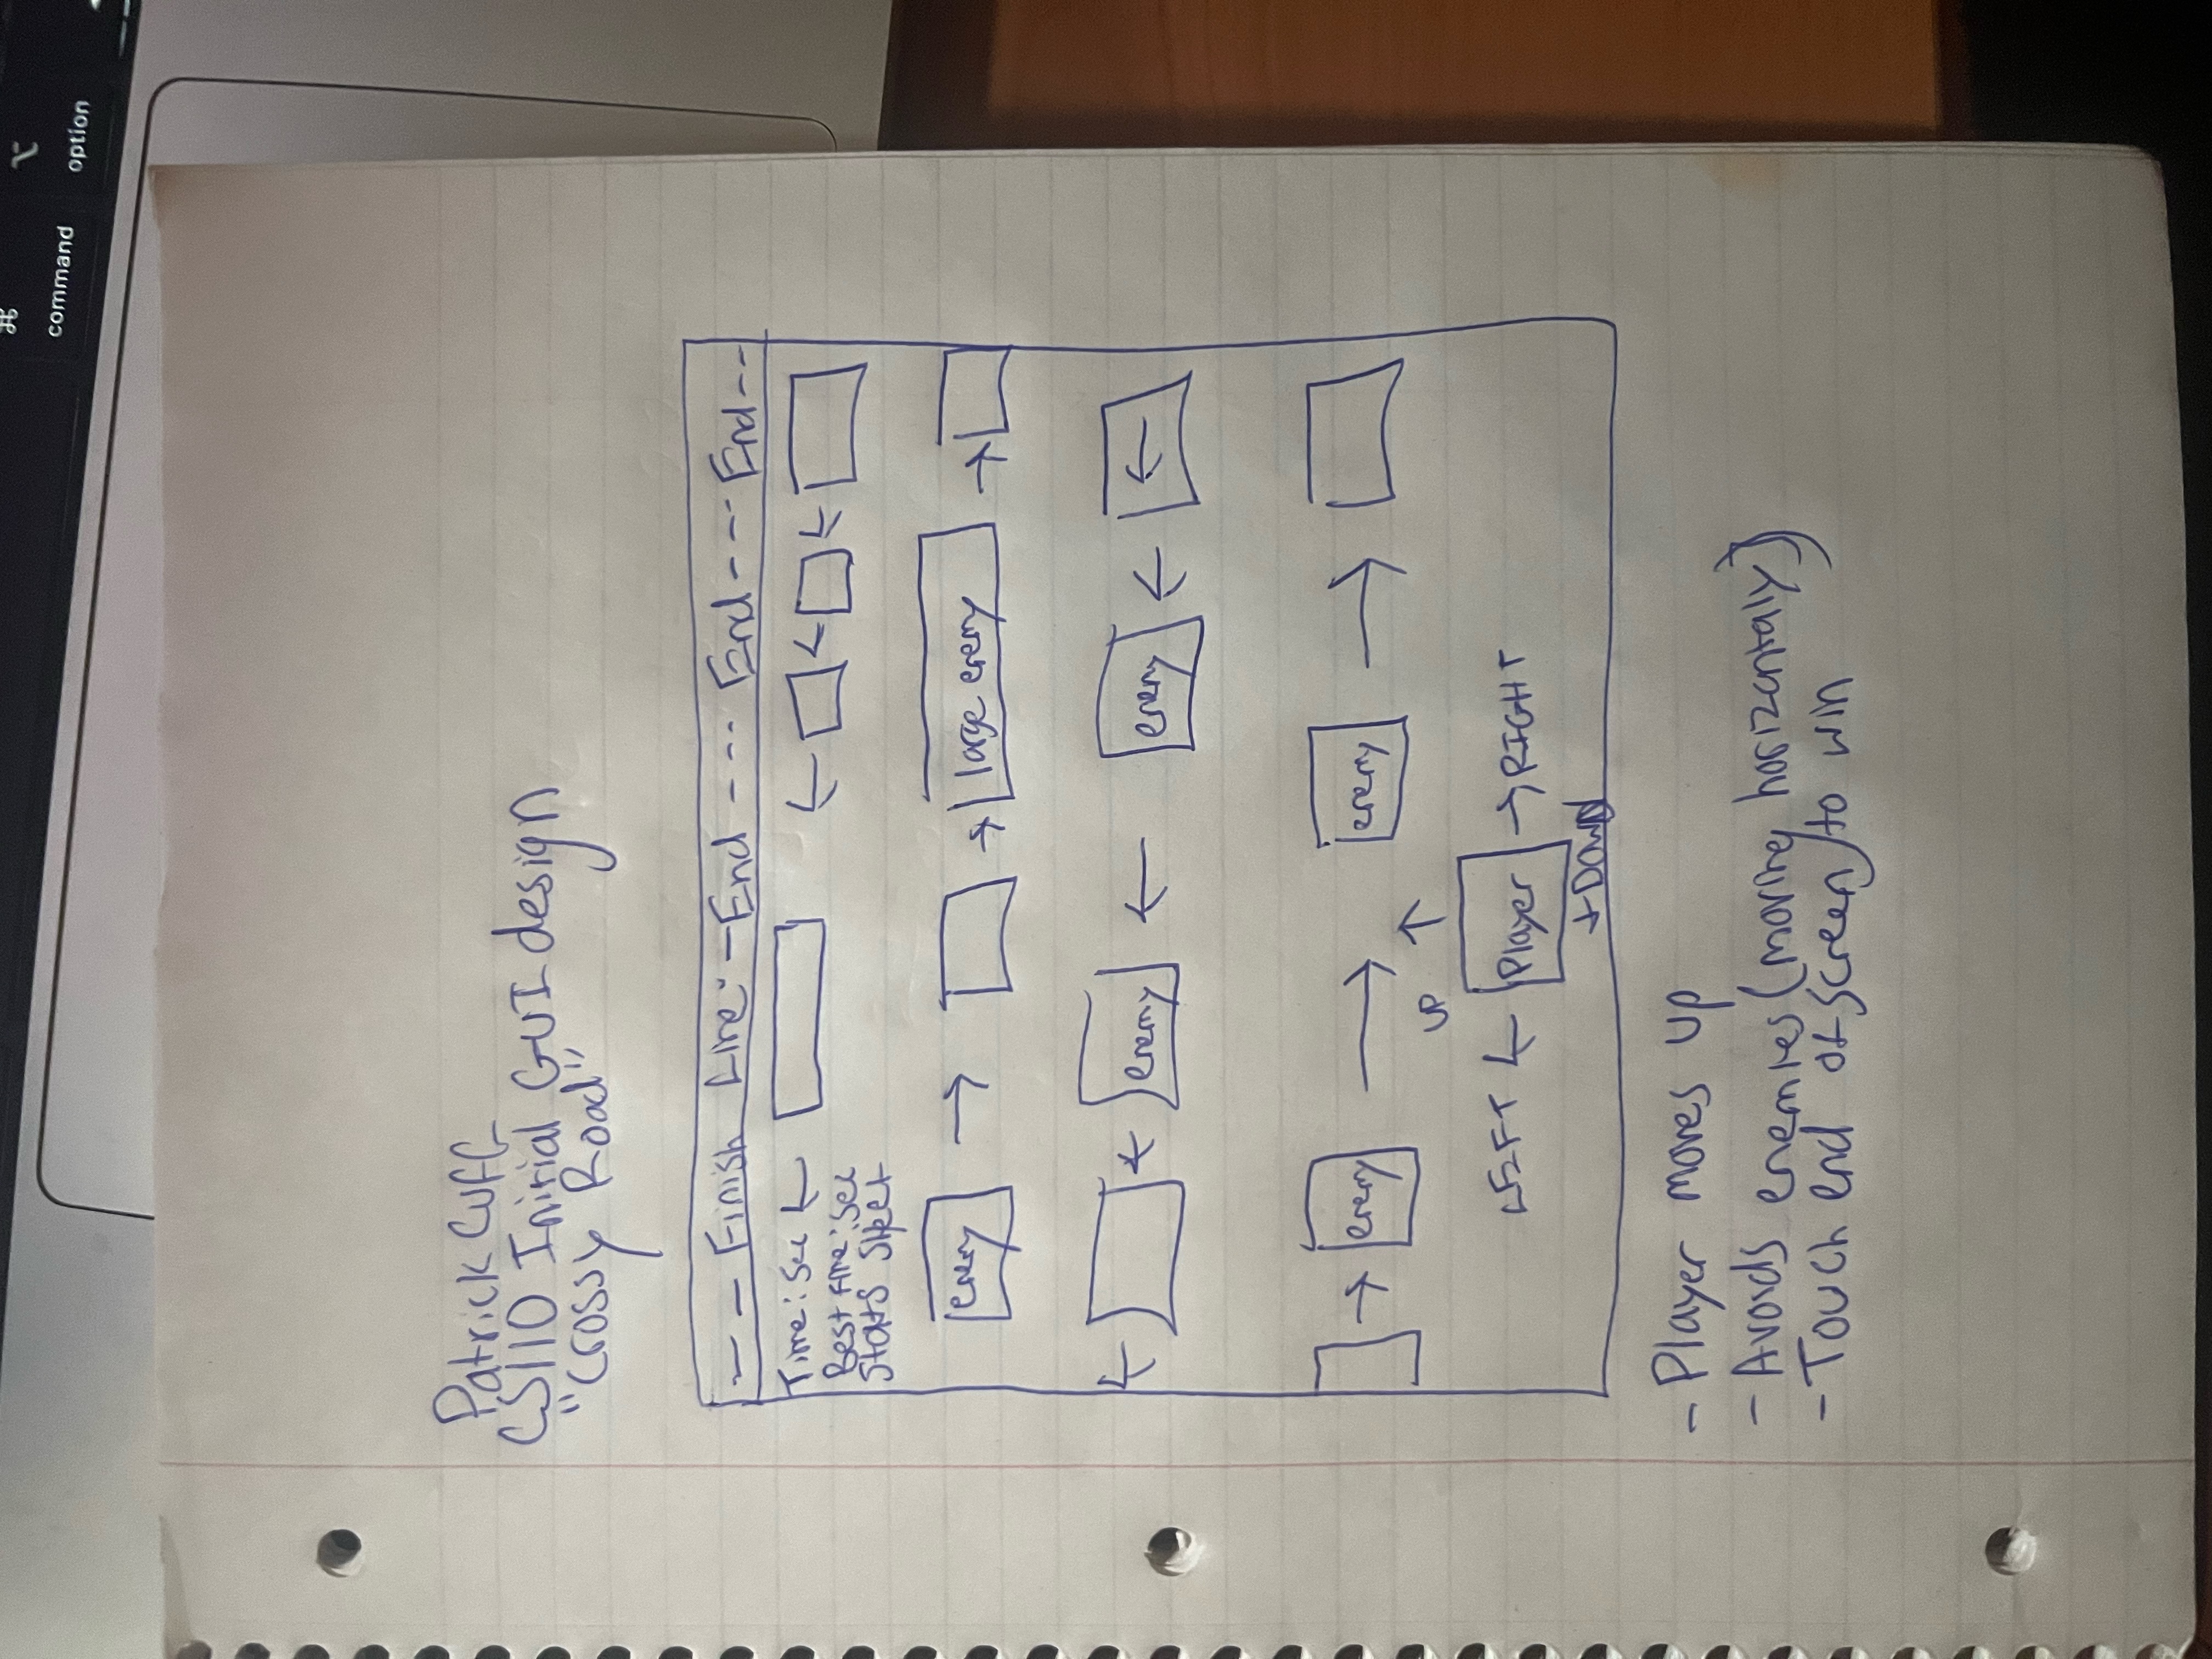 ⌘
⌥
command
option
Patrick Cuff
CS110 Initial GUI design
"Crossy Road"
-- Finish Line -- End --- End --- End --
Time: sec ←
← < ←
Best time: sec
Stats Sheet
enemy → → large enemy →
← ← enemy ← enemy ← ←
→ enemy → enemy →
UP ↑
LEFT ← Player → RIGHT
↓ Down
- Player moves up
- Avoids enemies (moving horizontaly)
- Touch end of screen to win